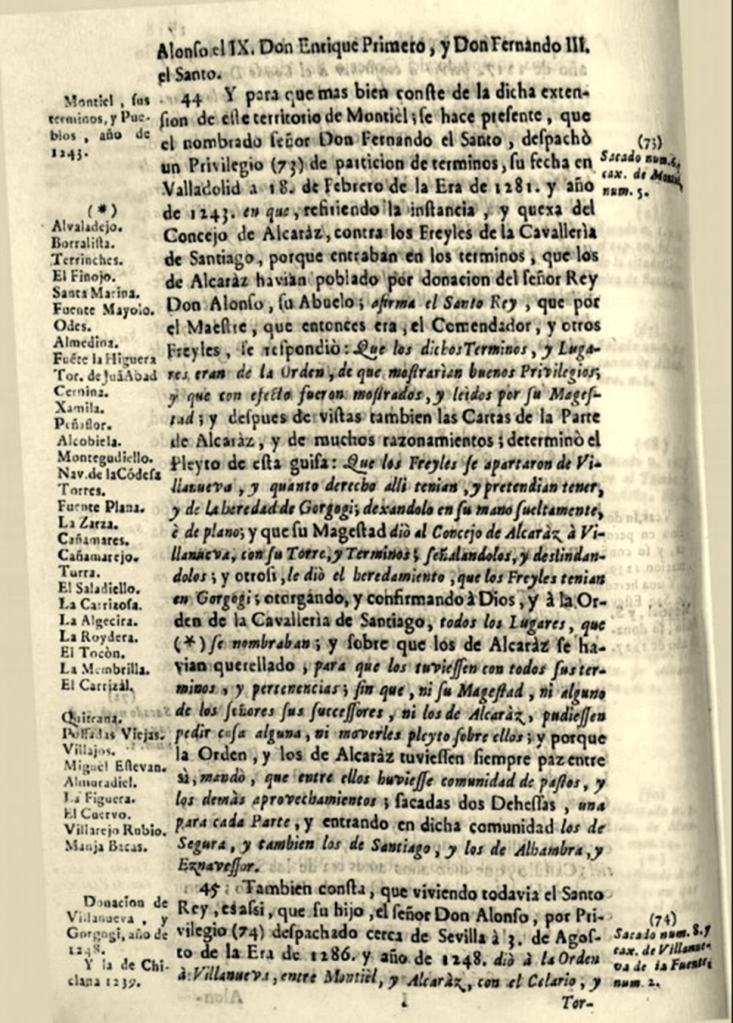 Alonso el IX. Don Enrique Primero, y Don Fernando III.
el Santo.
Montiel, sus
terminos, y Pue-
blos, año de
1243.
44 Y para que mas bien conste de la dicha exten-
sion de este territorio de Montiel; se hace presente, que
el nombrado señor Don Fernando el Santo, despachò
un Privilegio (73) de particion de terminos, su fecha en
Valladolid a 18. de Febrero de la Era de 1281. y año
de 1243. en que, refitiendo la instancia, y quexa del
Concejo de Alcaràz, contra los Freyles de la Cavallerìa
de Santiago, porque entraban en los terminos, que los
de Alcaràz havian poblado por donacion del señor Rey
Don Alonso, su Abuelo; afirma el Santo Rey, que por
el Maestre, que entonces era, el Comendador, y otros
Freyles, se respondiò: Que los dichos Terminos, y Luga-
res eran de la Orden, de que mostrarian buenos Privilegios;
y que con efecto fueron mostrados, y leìdos por su Mages-
tad; y despues de vistas tambien las Cartas de la Parte
de Alcaràz, y de muchos razonamientos; determinò el
Pleyto de esta guisa: Que los Freyles se apartaron de Vi-
llanueva, y quanto derecho alli tenian, y pretendian tener,
y de la heredad de Gorgogi; dexandolo en su mano sueltamente,
è de plano; y que su Magestad diò al Concejo de Alcaràz à Vi-
llanueva, con su Torre, y Terminos; señalandolos, y deslindan-
dolos; y otrosi, le diò el heredamiento, que los Freyles tenian
en Gorgogi; otorgando, y confirmando à Dios, y à la Or-
den de la Cavallerìa de Santiago, todos los Lugares, que
(*) se nombraban; y sobre que los de Alcaràz se ha-
vian querellado, para que los tuviessen con todos sus ter-
minos, y pertenencias; sin que, ni su Magestad, ni alguno
de los señores sus successores, ni los de Alcaràz, pudiessen
pedir cosa alguna, ni moverles pleyto sobre ellos; y porque
la Orden, y los de Alcaràz tuviessen siempre paz entre
sì, mandò, que entre ellos huviesse comunidad de pastos, y
los demàs aprovechamientos; sacadas dos Dehessas, una
para cada Parte, y entrando en dicha comunidad los de
Segura, y tambien los de Santiago, y los de Alhambra, y
Eznavessor.
(73)
Sacado num. 8.
cax. de Montiel,
num. 5.
(*)
Alvaladejo.
Borralista.
Terrinches.
El Finojo.
Santa Marina.
Fuente Mayolo.
Odes.
Almedina.
Fuẽte la Higuera
Tor. de Juã Abad
Cernina.
Xamila.
Peñaflor.
Alcobiela.
Montegudiello.
Nav. de la Códesa
Torres.
Fuente Plana.
La Zarza.
Cañamares.
Cañamarejo.
Turra.
El Saladiello.
La Carrizosa.
La Algecira.
La Roydera.
El Tocòn.
La Membrilla.
El Carrizàl.
Quintana.
Posadas Viejas.
Villajos.
Miguèl Estevan.
Almuradiel.
La Figuera.
El Cuervo.
Villarejo Rubio.
Manja Bacas.
45 Tambien consta, que viviendo todavia el Santo
Rey, es assi, que su hijo, el señor Don Alonso, por Pri-
vilegio (74) despachado cerca de Sevilla à 3. de Agos-
to de la Era de 1286. y año de 1248. diò à la Orden
à Villanueva, entre Montièl, y Alcaràz, con el Celario, y
Donacion de
Villanueva, y
Gorgogi, año de
1248.
Y la de Chi-
clana 1239.
(74)
Sacado num. 8. y
cax. de Villanue-
va de la Fuente,
num. 2.
Tor-